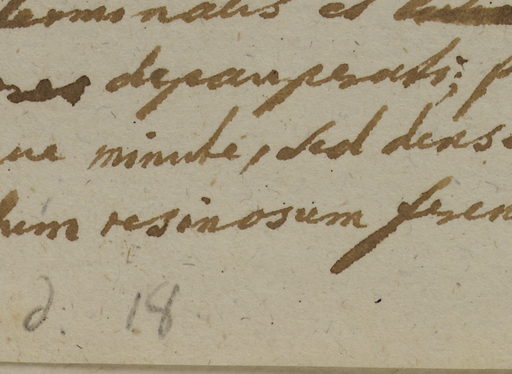 terminalis et
depauperati;
minute, sed dens
resinosum feren
d. 18